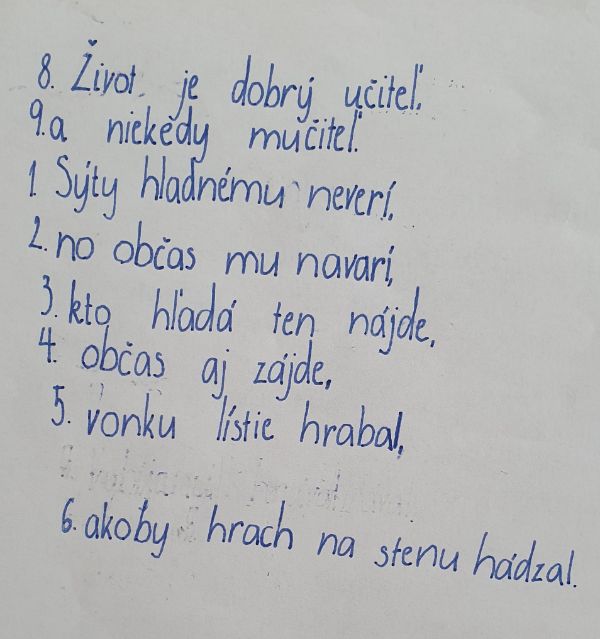 8. Život je dobrý učiteľ.
9. a niekedy mučiteľ.
1 Sýty hladnému neverí,
2. no občas mu navarí,
3. kto hľadá ten nájde,
4. občas aj zájde,
5. vonku lístie hrabal,
6. akoby hrach na stenu hádzal.